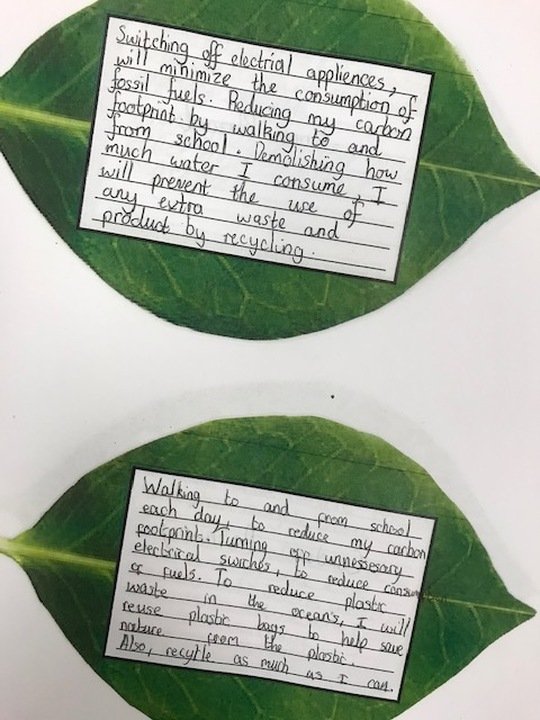 Switching off electrial appliences, I
will minimize the consumption of
fossil fuels. Reducing my carbon
footprint by walking to and
from school. Demolishing how
much water I consume, I
will prevent the use of
any extra waste and
product by recycling.
Walking to and from school
each day, to reduce my carbon
footprint. Turning off unnessesary
electrical swiches, to reduce consum
of fuels. To reduce plastic
waste in the ocean's, I will
reuse plastic bags to help save
nature from the plastic.
Also, recycle as much as I can.